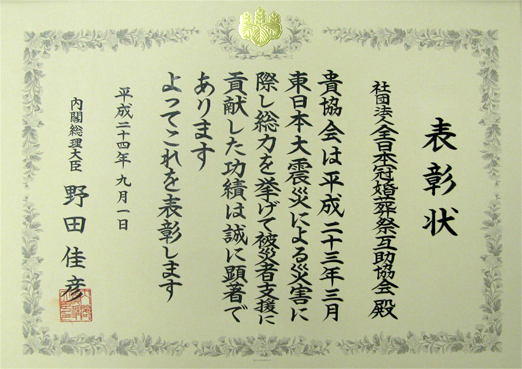 表彰状
社団法人全日本冠婚葬祭互助協会 殿
貴協会は平成二十三年三月
東日本大震災による災害に
際し総力を挙げて被災者支援に
貢献した功績は誠に顕著で
あります
よってこれを表彰します
平成二十四年九月一日
内閣総理大臣 野田佳彦